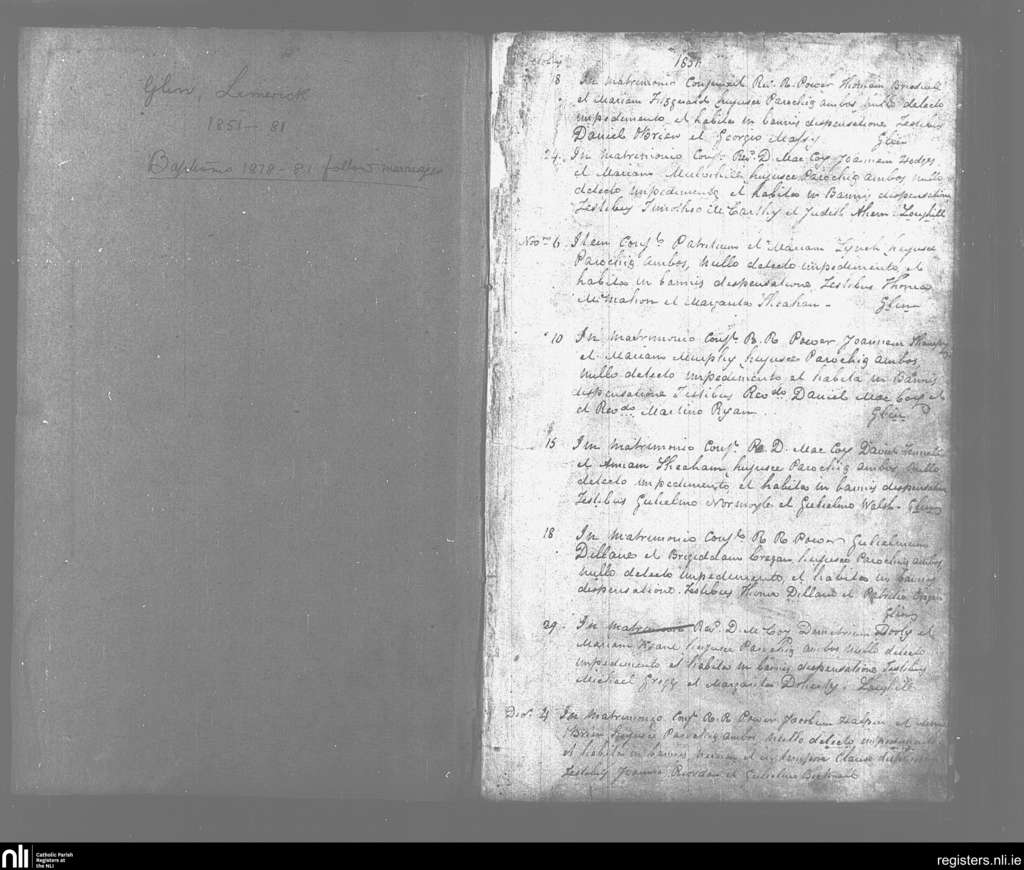 Glin, Limerick
1851 - 81
Baptisms 1878 - 81 follow marriages
1851
8 In Matrimonio Conjunxit Rev. R. Power Thomam
et Mariam Fitzgerald hujusce Parochiæ ambos nullo detecto
impedimento et habita in bannis dispensatione Testibus
Daniel O'Brien et Georgio Glin
24. In Matrimonio Conj.t Rev.d D. Mac Coy Joannem Hedges
et Mariam hujusce Parochiæ ambos nullo
detecto impedimento et habita in Bannis dispensatione
Testibus Timotheo Mc Carthy et Judith Ahern. Loughill
Nov. 6. Item Conj.t Patritium et Mariam Lynch hujusce
Parochiæ ambos, nullo detecto impedimento et
habita in bannis dispensatione Testibus Thoma
McMahon et Margarita Sheahan - Glin
10 In Matrimonio Conj.t R. R. Power Joannem
et Mariam Murphy hujusce Parochiæ ambos
nullo detecto impedimento et habita in Bannis
dispensatione Testibus Rev.do Daniel Mac Coy et
et Rev.do Martino Ryan. Glin
15 In Matrimonio Conj.t R. D. Mac Coy David
et Annam Sheahan hujusce Parochiæ ambos nullo
detecto impedimento et habita in bannis dispensatione
Testibus Gulielmo Normoyle et Gulielmo Walsh - Glin
18 In Matrimonio Conj.t R. R. Power Gulielmum
Dillane et Brigiddam Cregan hujusce Parochiæ ambos
nullo detecto impedimento et habita in bannis
dispensatione. Testibus Thoma Dillane et Patritio
Glin
29. In Matrimonio Rev.d D. McCoy Demetrium Dooly et
Mariam Keane hujusce Parochiæ ambos nullo detecto
impedimento et habita in bannis dispensatione Testibus
Michael et Margarita Doherty. Loughill
Dec. 4 In Matrimonio Conj.t R. R. Power Jacobum et
Brien hujusce Parochiæ ambos nullo detecto impedimento
et habita in bannis et in tempore clauso dispensatione
Testibus Joanne Riordan et Gulielmo
nli
Catholic Parish
Registers at
the NLI
registers.nli.ie